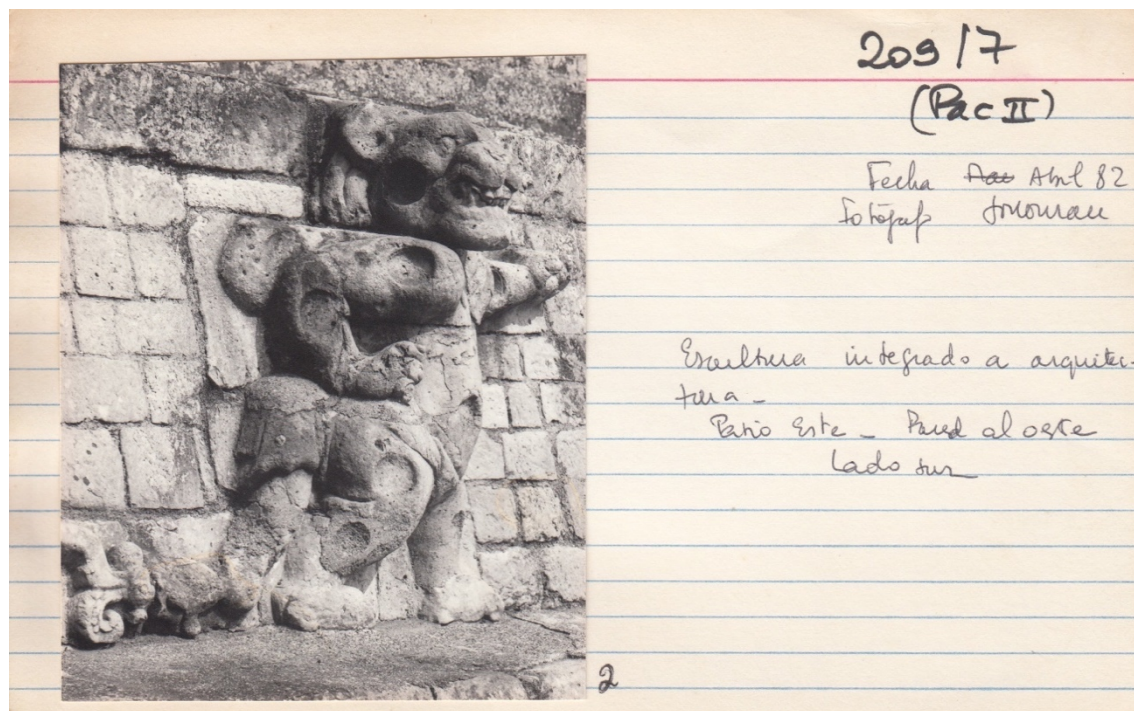 209/7
(Pac II)
Fecha Abril 82
Fotógraf
Escultura integrado a arquitec-
tura -
Patio Este - Pared al oeste
lado sur
2